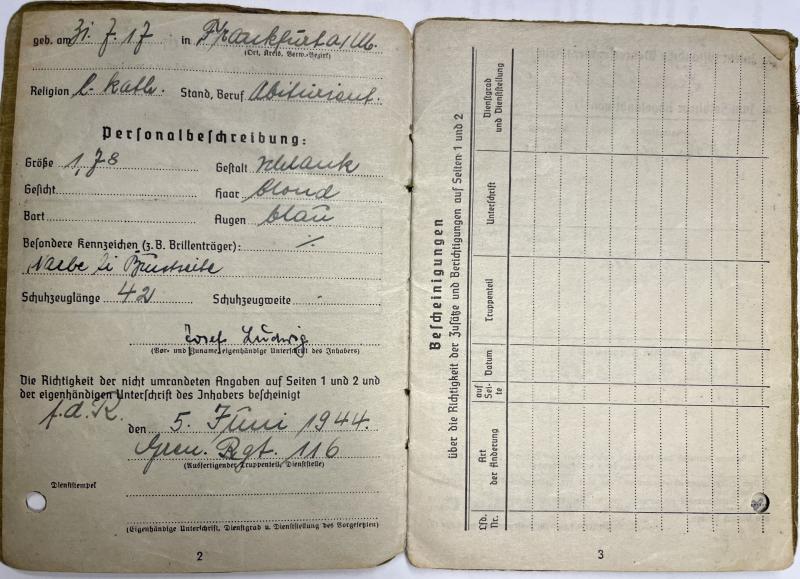 geb. am 31. 7. 17 in Frankfurt a/M.
(Ort, Kreis, Verw.-Bezirk)
Religion r. kath. Stand, Beruf Abiturient.
Personalbeschreibung:
Größe 1,78 Gestalt schlank
Gesicht Haar blond
Bart Augen blau
Besondere Kennzeichen (z. B. Brillenträger): ·/.
Narbe li Brustseite
Schuhzeuglänge 42 Schuhzeugweite -
Josef Ludwig
(Vor- und Zuname, eigenhändige Unterschrift des Inhabers)
Die Richtigkeit der nicht umrandeten Angaben auf Seiten 1 und 2 und
der eigenhändigen Unterschrift des Inhabers bescheinigt
f. d. R.
den 5. Juni 1944.
Gren. Rgt. 116
(Ausfertigender Truppenteil, Dienststelle)
Dienststempel
(Eigenhändige Unterschrift, Dienstgrad u. Dienststellung des Vorgesetzten)
2
Bescheinigungen
über die Richtigkeit der Zusätze und Berichtigungen auf Seiten 1 und 2
Lfd. Nr.
Art der Änderung
auf Sei-te
Datum
Truppenteil
Unterschrift
Dienstgrad und Dienststellung
3